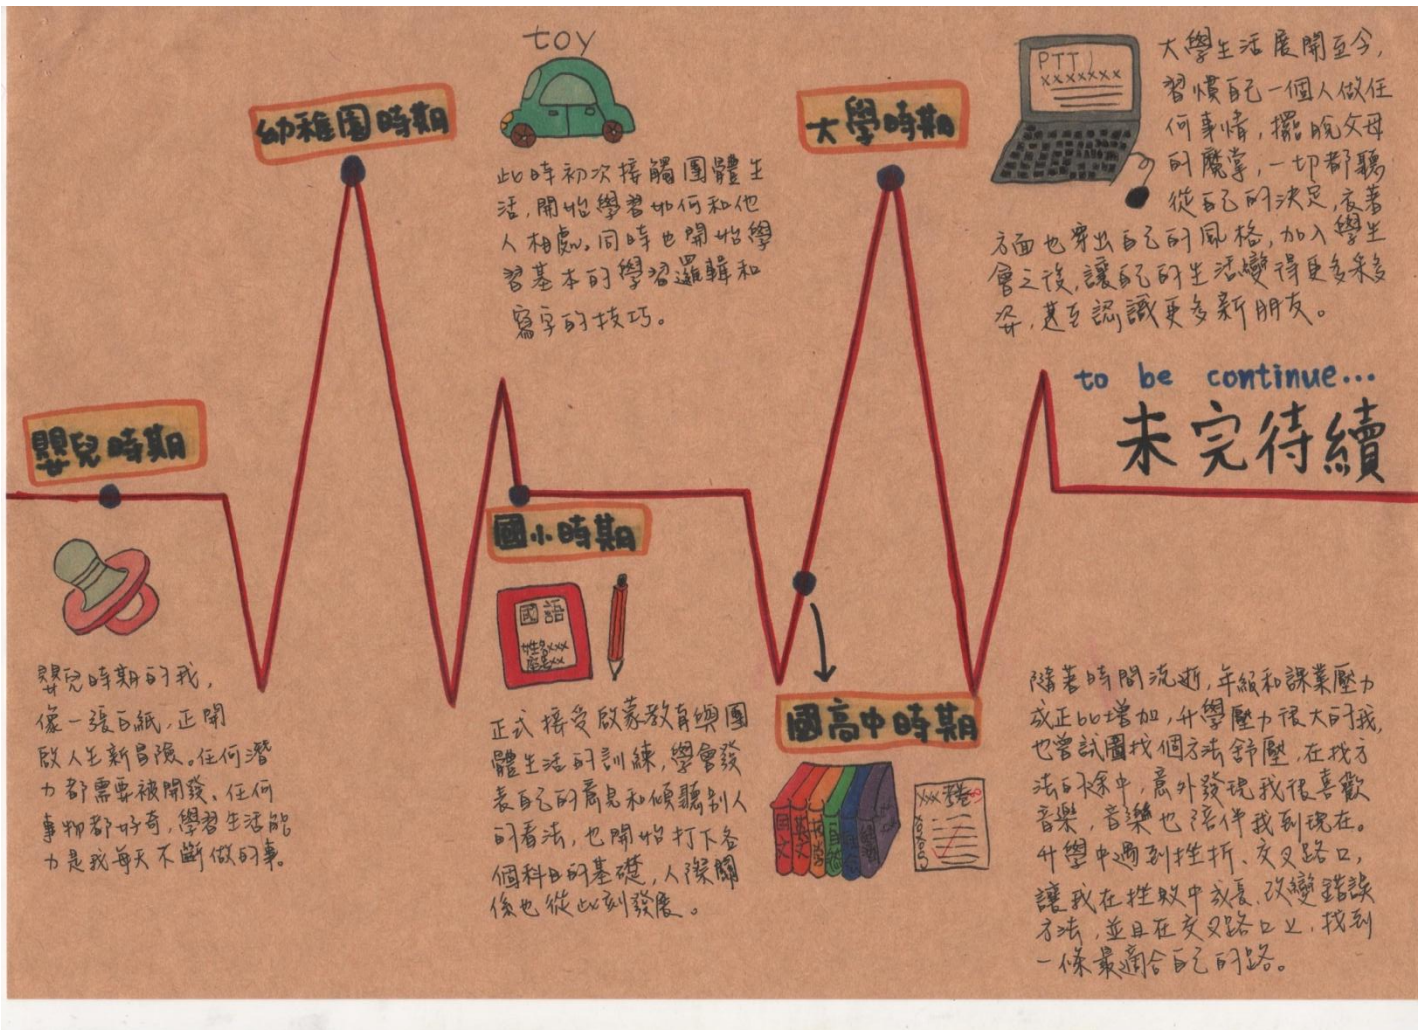 嬰兒時期
嬰兒時期的我，
像一張白紙，正開
啟人生新冒險。任何潛
力都需要被開發、任何
事物都好奇，學習生活能
力是我每天不斷做的事。
幼稚園時期
toy
此時初次接觸團體生
活，開始學習如何和他
人相處。同時也開始學
習基本的學習邏輯和
寫字的技巧。
國小時期
國語
姓名xx
正式接受啟蒙教育與團
體生活的訓練，學會發
表自己的意見和傾聽別人
的看法，也開始打下各
個科目的基礎，人際關
係也從此刻發展。
國高中時期
隨著時間流逝，年級和課業壓力
成正比增加，升學壓力很大的我，
也嘗試圖找個方法舒壓，在找方
法的途中，意外發現我很喜歡
音樂，音樂也陪伴我到現在。
升學中遇到挫折、交叉路口，
讓我在挫敗中成長、改變錯誤
方法，並且在交叉路口上，找到
一條最適合自己的路。
大學時期
PTT
xxxxxxx
大學生活展開至今，
習慣自己一個人做任
何事情，擺脫父母
的魔掌，一切都聽
從自己的決定，衣著
方面也穿出自己的風格，加入學生
會之後，讓自己的生活變得更多采多
姿，甚至認識更多新朋友。
to be continue...
未完待續